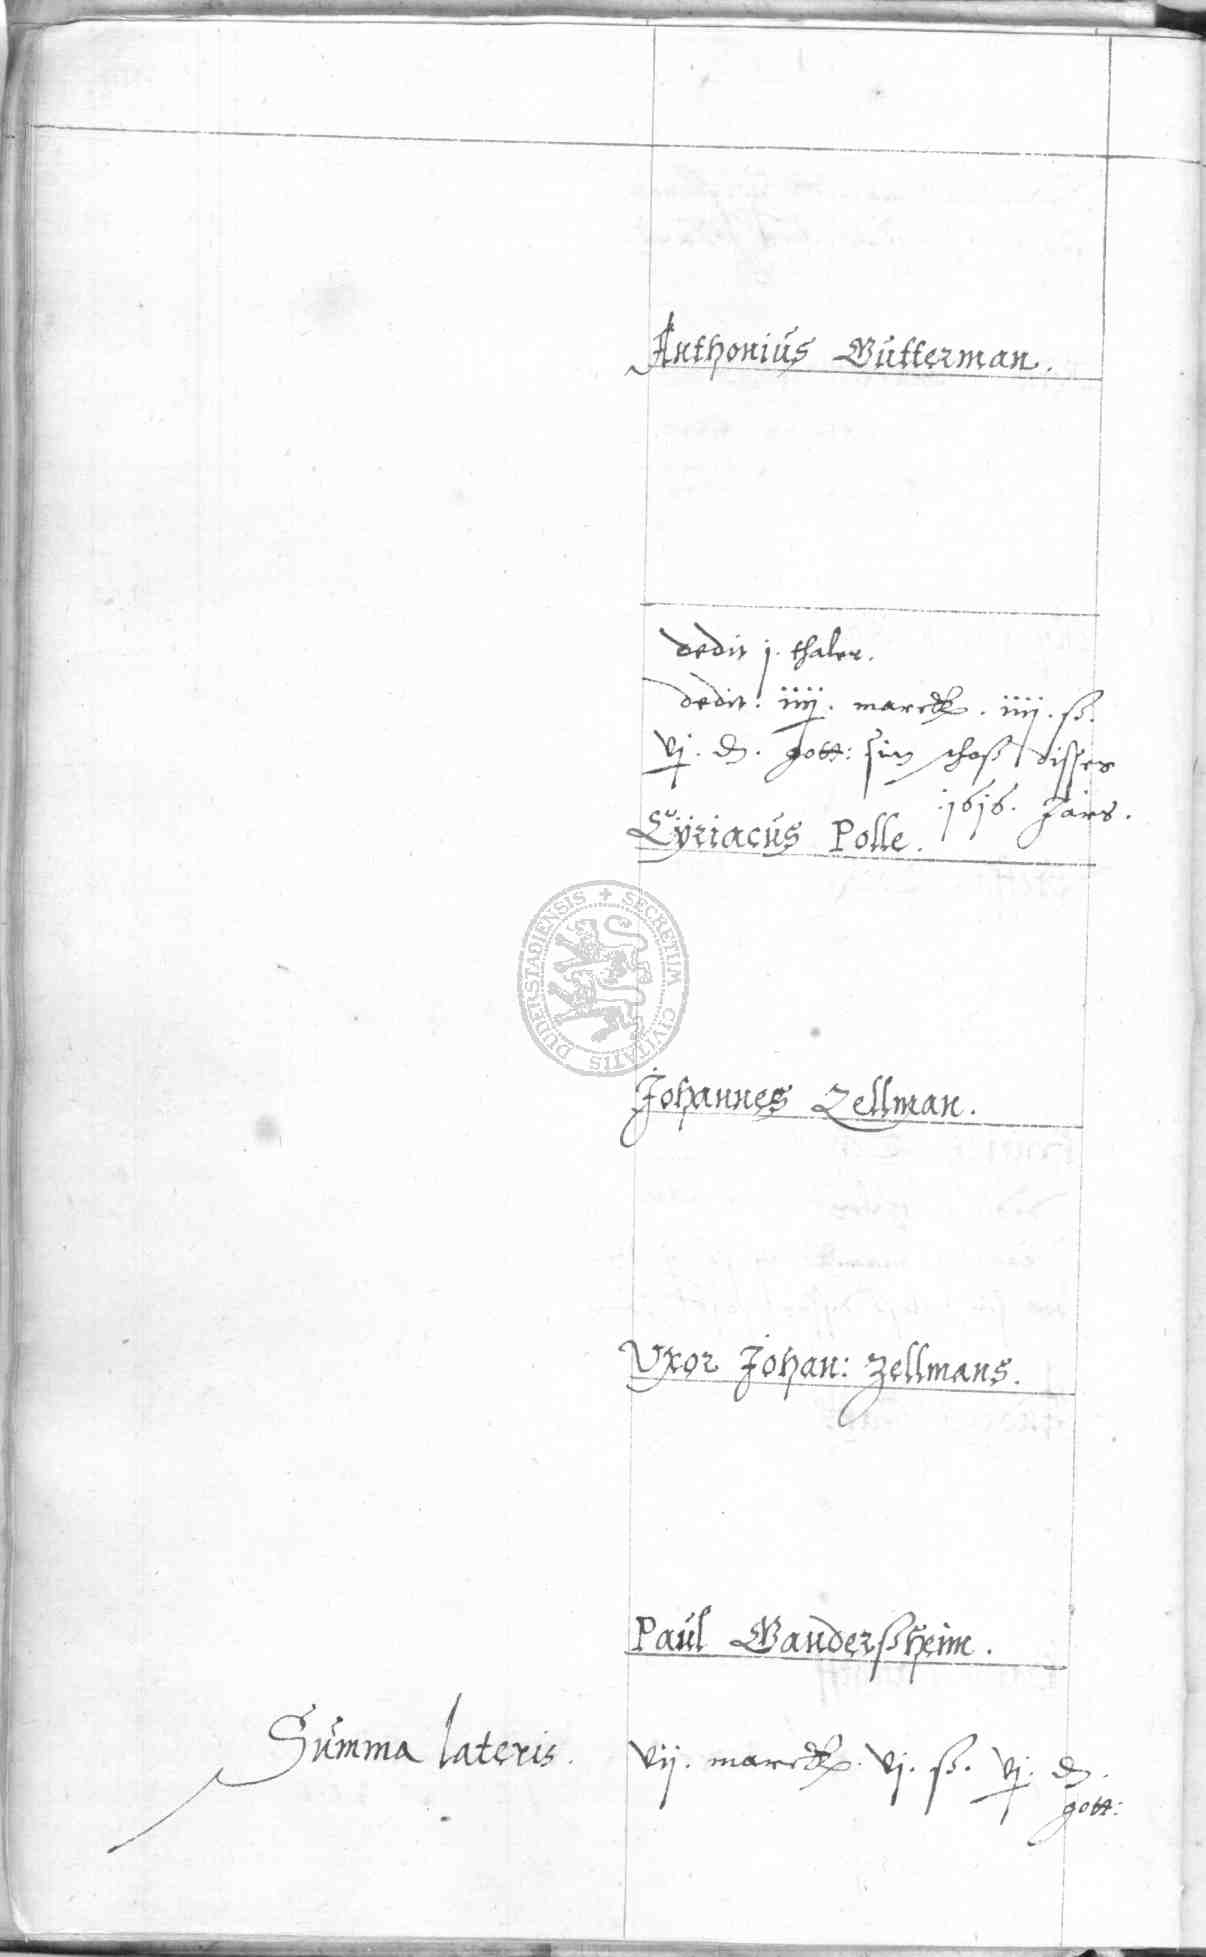 Anthonius Gutterman.
dedit j. thaler.
dedit. iiij. marck. iiij. ß.
vj. d. gott: sin schoß disses
.1616. Jars.
Cyriacus Polle.
SECRETUM CIVITATIS DUDERSTADIENSIS
Johannes Zellman.
Vxor Johan: Zellmans.
Paul Ganderßheim.
Summa lateris. vij. marck. vj. ß. vj. d.
gott: